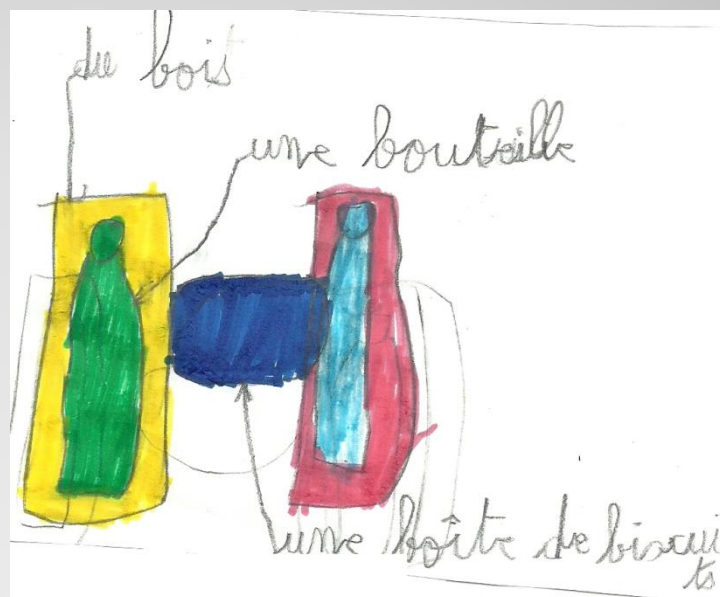 du bois
une bouteille
une boîte de biscui
ts